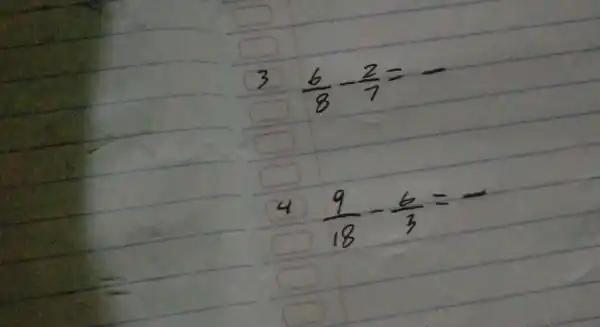 3 6/8 - 2/7 = -
4 9/18 - 6/3 = -